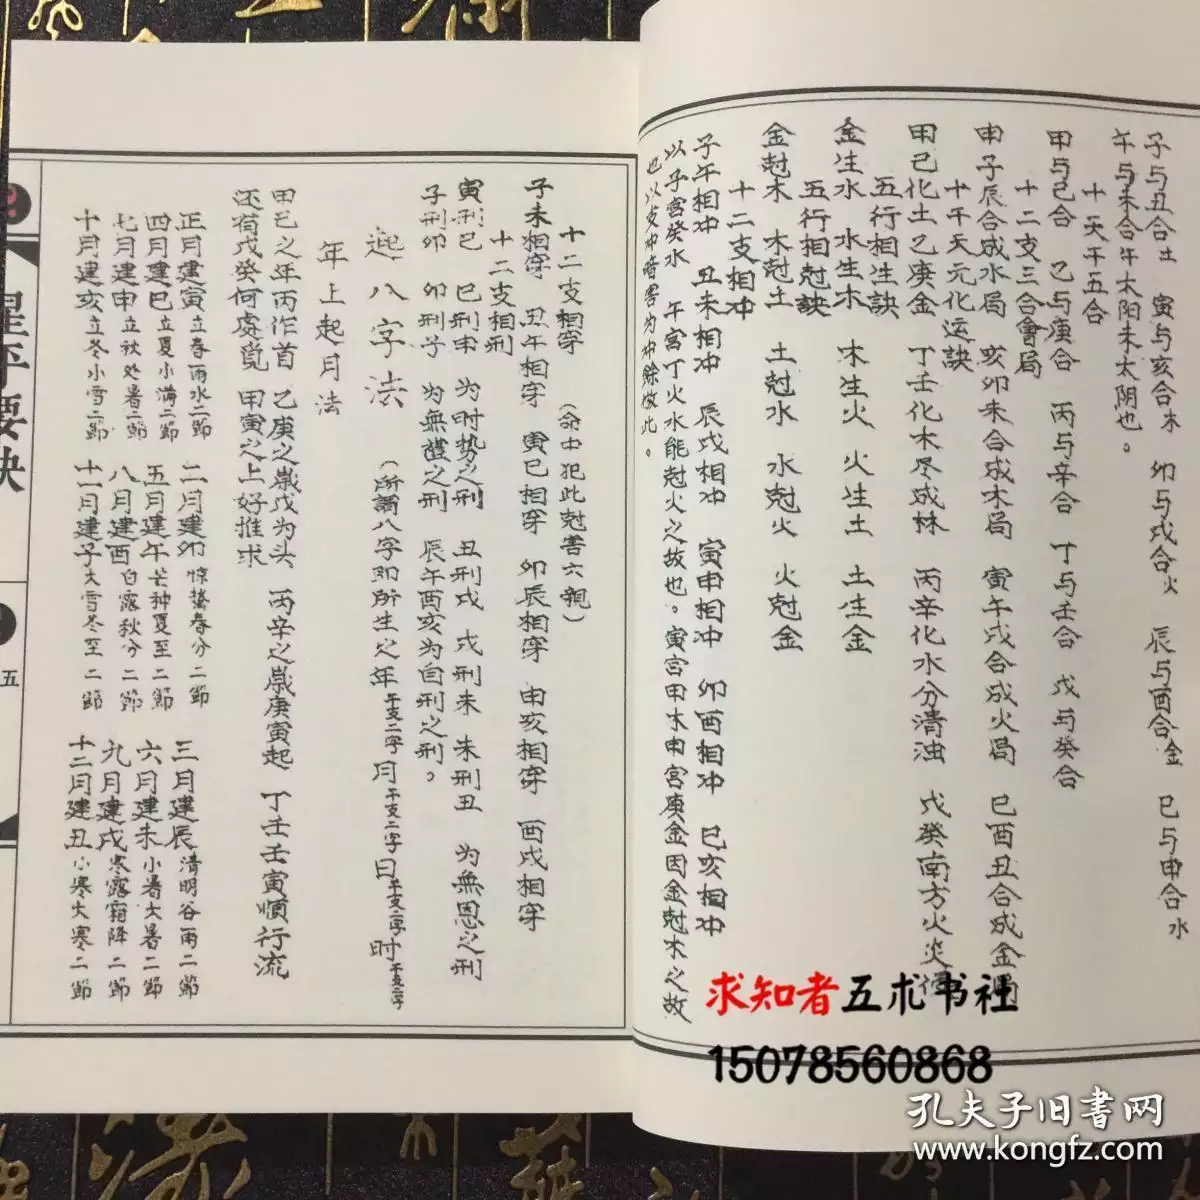 子与丑合土 寅与亥合木 卯与戌合火 辰与酉合金 巳与申合水
午与未合午太阳未太阴也。
十天干五合
甲与己合 乙与庚合 丙与辛合 丁与壬合 戊与癸合
十二支三合會局
申子辰合成水局 亥卯未合成木局 寅午戌合成火局 巳酉丑合成金局
十干天元化运訣
甲己化土乙庚金 丁壬化木尽成林 丙辛化水分清浊 戊癸南方火炎
五行相生訣
金生水 水生木 木生火 火生土 土生金
五行相尅訣
金尅木 木尅土 土尅水 水尅火 火尅金
十二支相冲
子午相冲 丑未相冲 辰戌相冲 寅申相冲 卯酉相冲 巳亥相冲
以子宫癸水 午宫丁火水能尅火之故也。寅宫甲木申宫庚金因金尅木之故
也以支冲暗害为冲餘倣此。
十二支相穿 (命中犯此尅害六親)
子未相穿 丑午相穿 寅巳相穿 卯辰相穿 申亥相穿 酉戌相穿
十二支相刑
寅刑巳 巳刑申 为时势之刑 丑刑戌 戌刑未 未刑丑 为無恩之刑
子刑卯 卯刑子 为無禮之刑 辰午酉亥为自刑之刑。
起八字法 (所謂八字即所生之年干支二字月干支二字日干支二字时干支二字
年上起月法
甲己之年丙作首 乙庚之歳戊为头 丙辛之歳庚寅起 丁壬壬寅順行流
还有戊癸何處覓 甲寅之上好推求
正月建寅立春雨水二節 二月建卯惊蟄春分二節 三月建辰清明谷雨二節
四月建巳立夏小满二節 五月建午芒种夏至二節 六月建未小暑大暑二節
七月建申立秋处暑二節 八月建酉白露秋分二節 九月建戌寒露霜降二節
十月建亥立冬小雪二節 十一月建子大雪冬至二節 十二月建丑小寒大寒二節
星平要訣
五
求知者五术书社
15078560868
孔夫子旧書网
www.kongfz.com